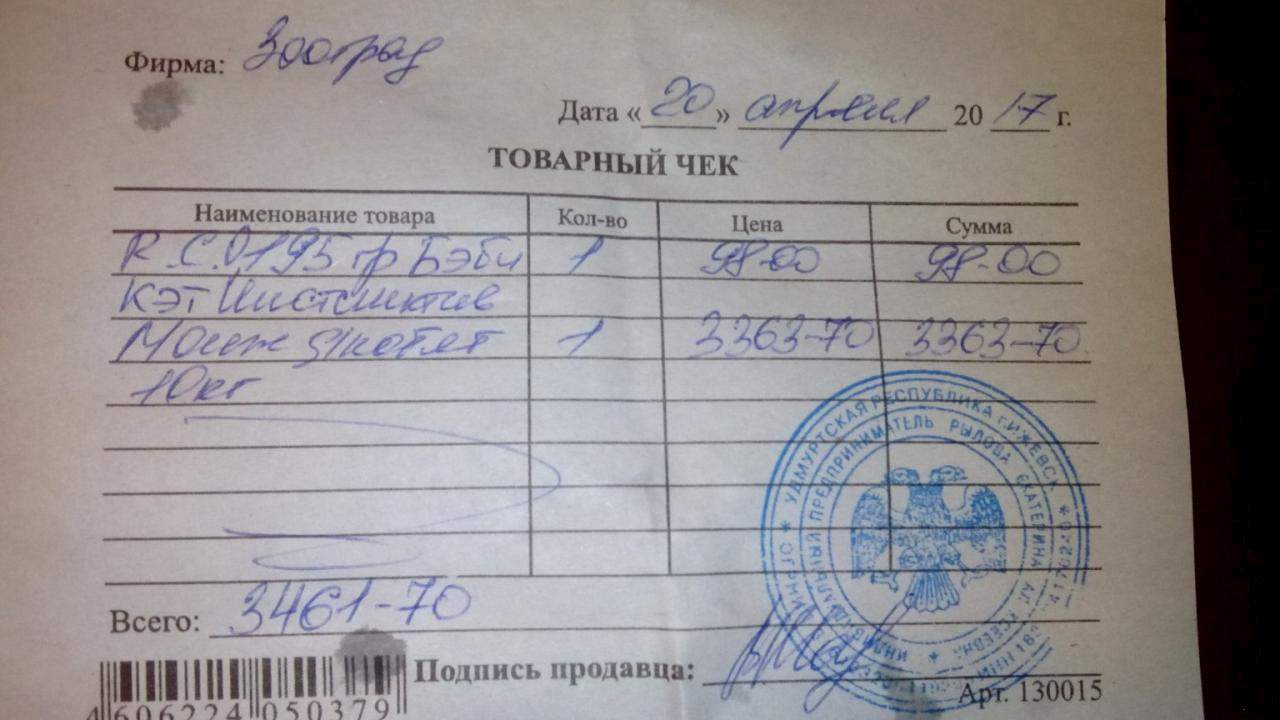 Фирма: Зооград
Дата «20» апреля 2017 г.
ТОВАРНЫЙ ЧЕК
Наименование товара Кол-во Цена Сумма
R.C. 0.195 гр Бэби 1 98-00 98-00
Кэт Инстинктив
1 3363-70 3363-70
10кг
Всего: 3461-70
Подпись продавца:
Арт. 130015
4 606224 050379
УДМУРТСКАЯ РЕСПУБЛИКА г.ИЖЕВСК
ИНДИВИДУАЛЬНЫЙ ПРЕДПРИНИМАТЕЛЬ РЫЛОВА ЕКАТЕРИНА